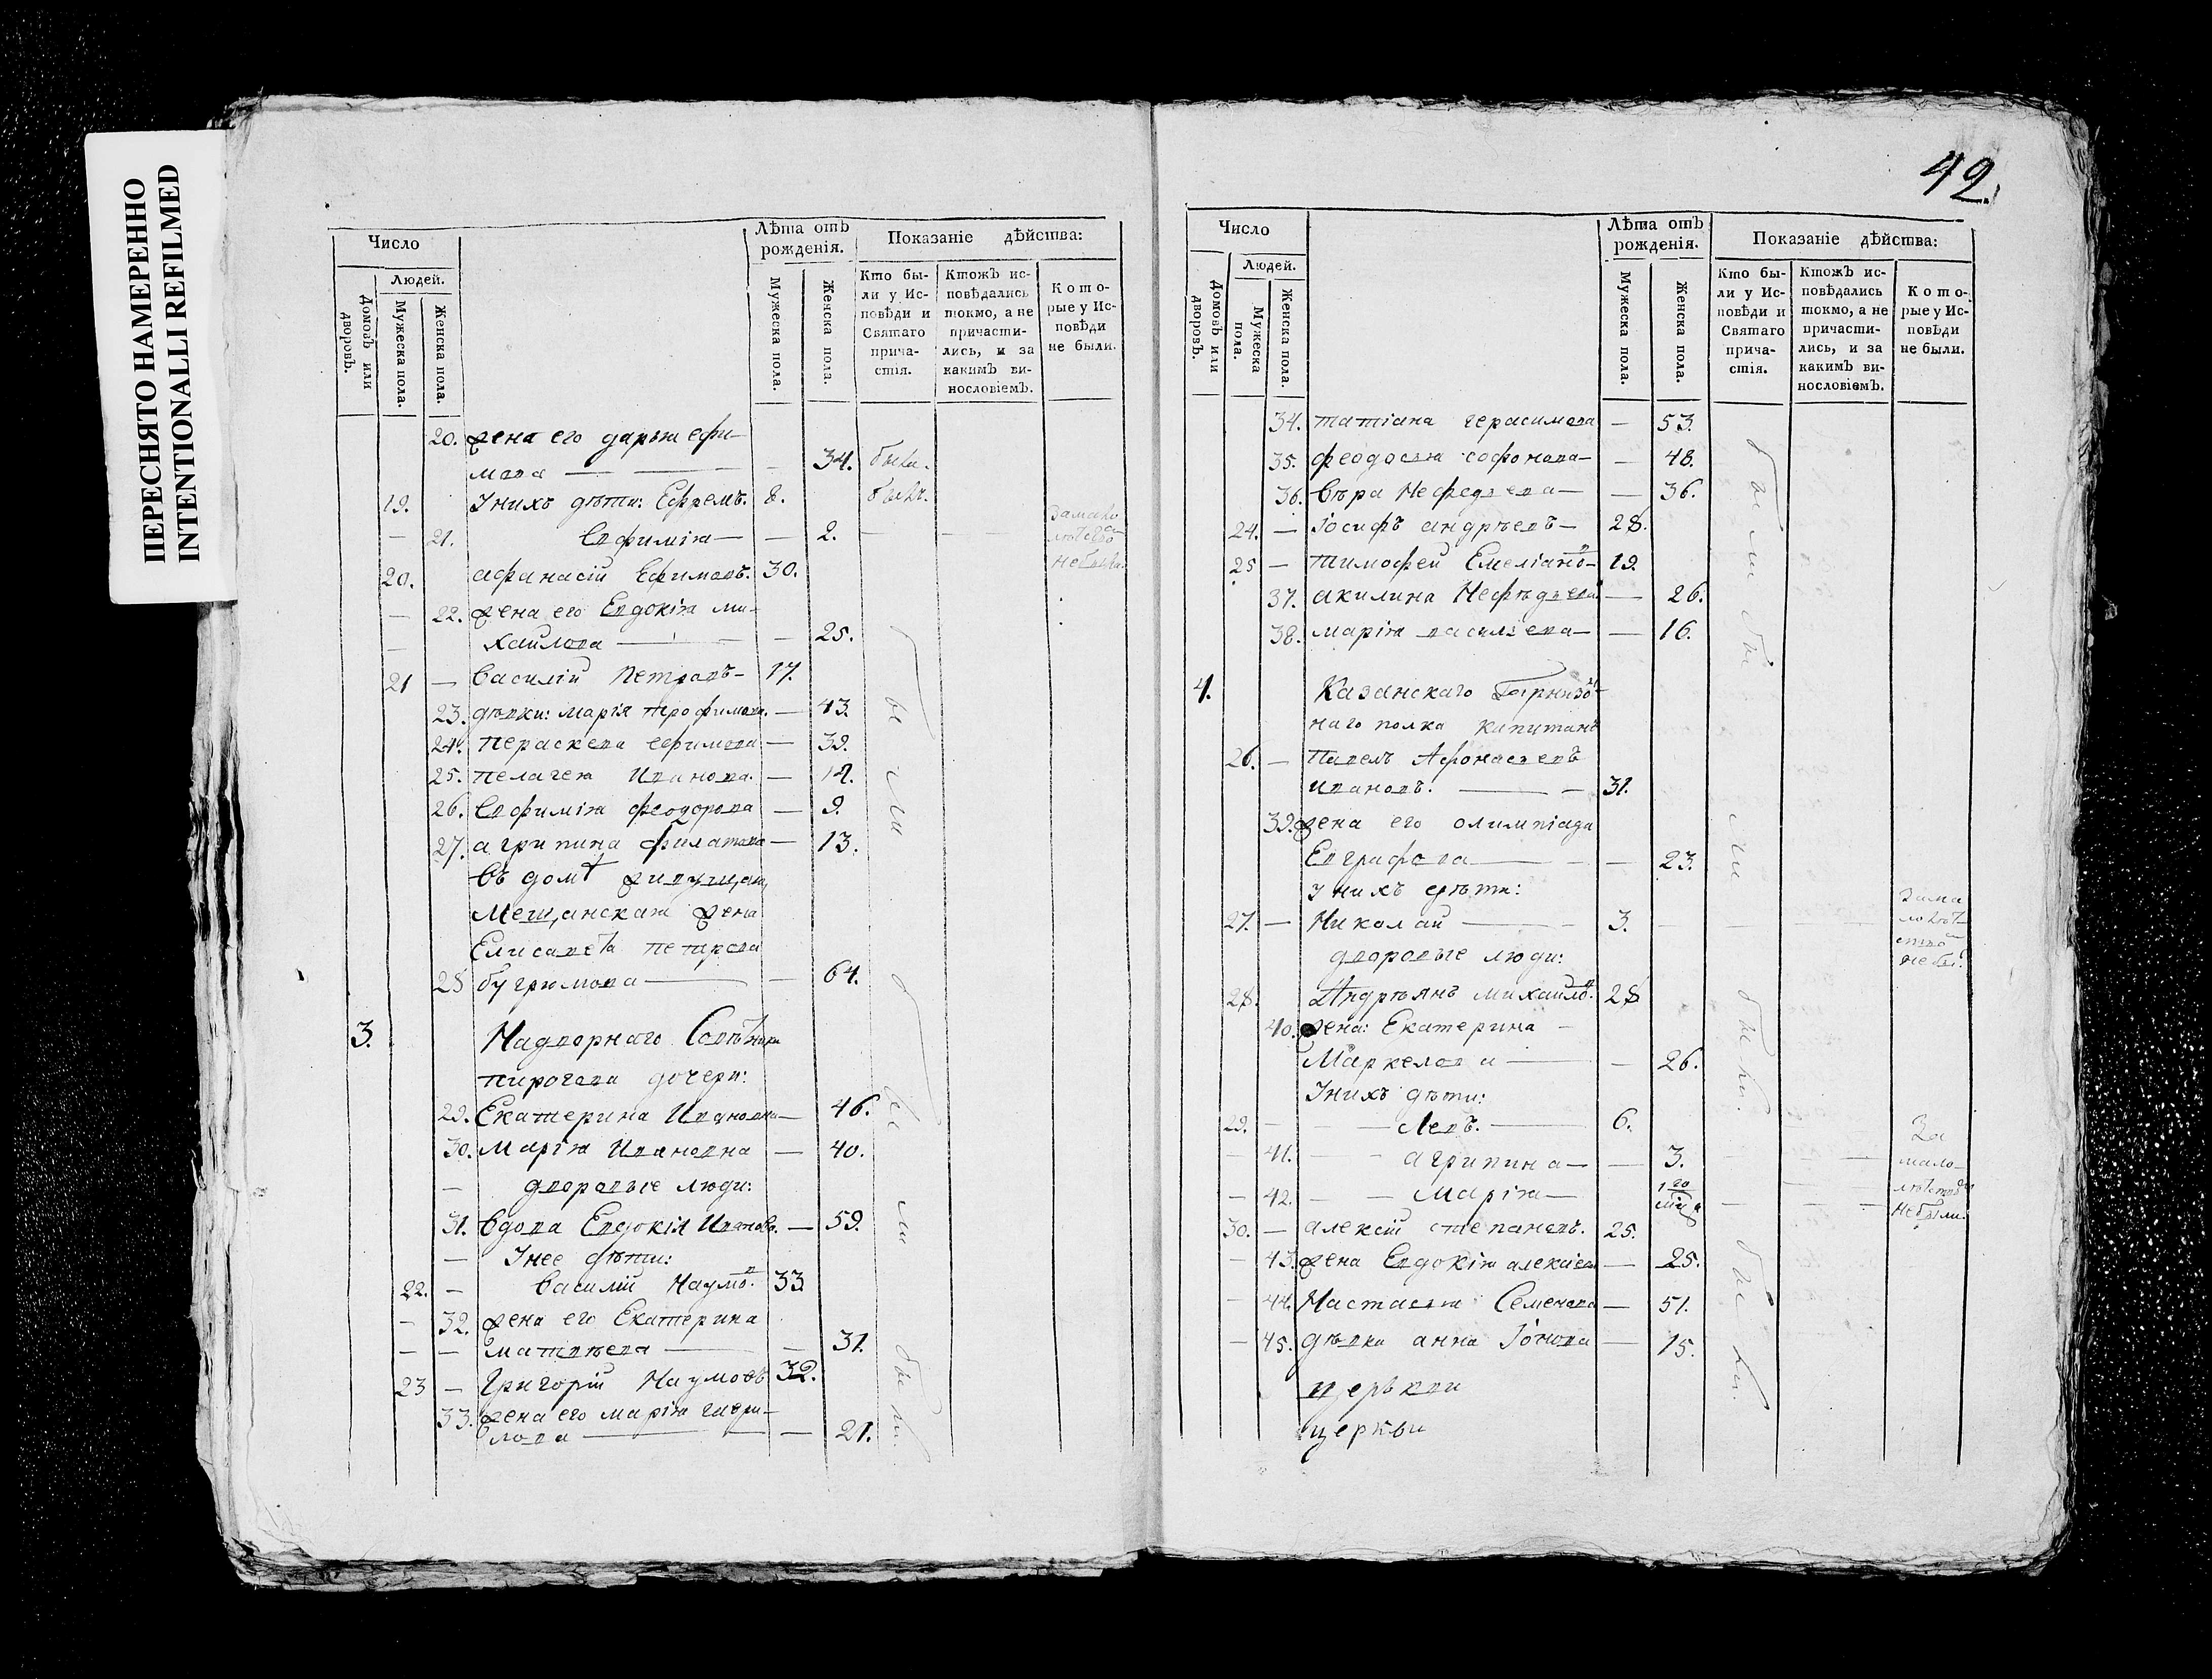 ПЕРЕСНЯТО НАМЕРЕННО
INTENTIONALLI REFILMED
42.
Число
Людей.
Домовъ или дворовъ.
Мужеска пола.
Женска пола.
Лѣта отъ рожденія.
Мужеска пола.
Женска пола.
Показаніе дѣйства:
Кто бы-
ли у Ис-
повѣди и
Святаго
прича-
стія.
Ктожъ ис-
повѣдались
токмо, а не
причасти-
лись, и за
какимъ ви-
нословіемъ.
Кото-
рые у Ис-
повѣди
не были.
20. жена его дарья ефи-
мова — 34. была.
19. У нихъ дѣти: Ефремъ. 8. былъ.
— 21. Евфимія — — 2.
За мало
лѣтство
не была.
20. афанасій Ефимовъ. 30.
— 22. жена его Евдокія ми-
хайлова — — 25.
21 — Василій Петровъ — 17.
23. дѣвки: марія трофимова. — 43.
24. Параскева ефимова — 39.
25. пелагея Иванова. — 14.
26. Евфимія феодорова — 9.
27. агрипина филатова — 13.
въ домѣ живущая
Мещанская жена
Елисавета петрова
28 бугримова — — 64.
были
3. Надворнаго Совѣтника
пирогова дочери:
29. Екатерина Ивановна — 46.
30. Марія Ивановна — 40.
— дворовые люди:
31. Вдова Евдокія Иванова. — 59.
— У нее дѣти:
22. — Василій Наумовъ. 33
— 32. жена его Екатерина
— — матвѣева — — 31.
23 — Григорій Наумовъ 32.
33. жена его марія гаври-
лова — — 21.
были
были.
Число
Людей.
Домовъ или дворовъ.
Мужеска пола.
Женска пола.
Лѣта отъ рожденія.
Мужеска пола.
Женска пола.
Показаніе дѣйства:
Кто бы-
ли у Ис-
повѣди и
Святаго
прича-
стія.
Ктожъ ис-
повѣдались
токмо, а не
причасти-
лись, и за
какимъ ви-
нословіемъ.
Кото-
рые у Ис-
повѣди
не были.
34. татіана герасимова — 53.
35. феодосья софонова — — 48.
36. Вѣра Нефедьева — — 36.
24. — Іосифъ андрѣевъ — 28.
25 — тимофей Емеліановъ — 19.
37. акилина Нефѣдьева — 26.
38. марія васильева — — 16.
были
4. Казанскаго Гарнизон-
наго полка капитанъ
26. — Павелъ Афонасьевъ
ивановъ. — — 31.
39. жена его олимпіада
Евграфова — — 23.
У нихъ дѣти:
27. — Николай — 3.
За ма
лолѣт-
ство
не бы.
дворовые люди:
28. Андрѣянъ михайловъ. 28
40. жена: Екатерина —
Маркелова — — 26.
У нихъ дѣти:
29. — — Левъ. — 6.
— 41. — — агрипина — — 3.
— 42. — — Марія —
За
мало-
лѣтство
не были.
30. — алексій степановъ. 25.
— 43. жена Евдокія алексіева — 25.
— 44. Настасья Семенова — 51.
— 45. дѣвка анна Іонова — 15.
были.
были.
церькви
церкви